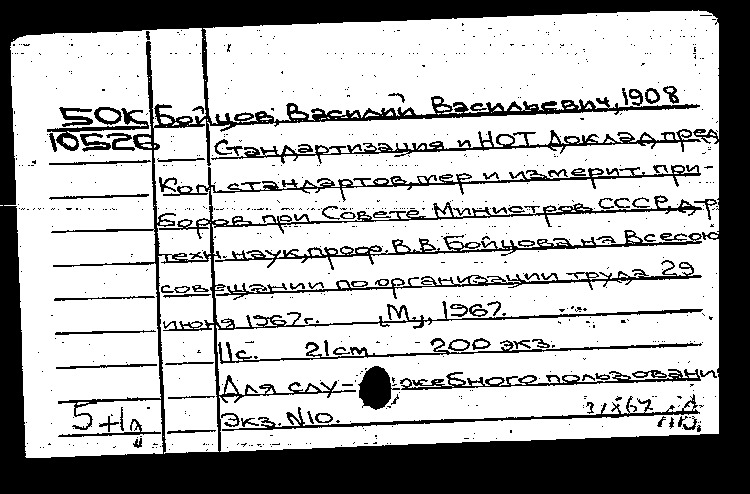 50К Бойцов, Василий Васильевич, 1908
10526 Стандартизация и НОТ. Доклад пред
Ком. стандартов, мер и измерит. при-
боров при Совете Министров СССР, д-р
техн. наук, проф. В.В. Бойцова на Всесою
совещании по организации труда 29
июня 1967г. [М.], 1967.
11с. 21см. 200 экз.
Для слу- жебного пользовани
5+1д Экз. N10.